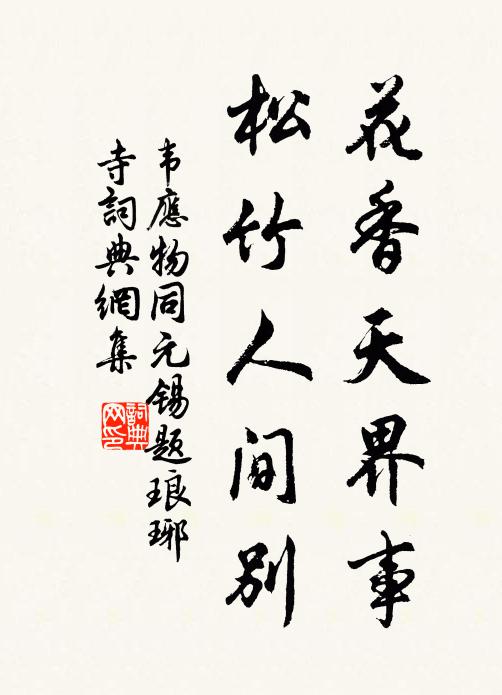 花香天界事
松竹人间别
韦應物同元锡题琅琊
寺詞典網集
詞典
网印